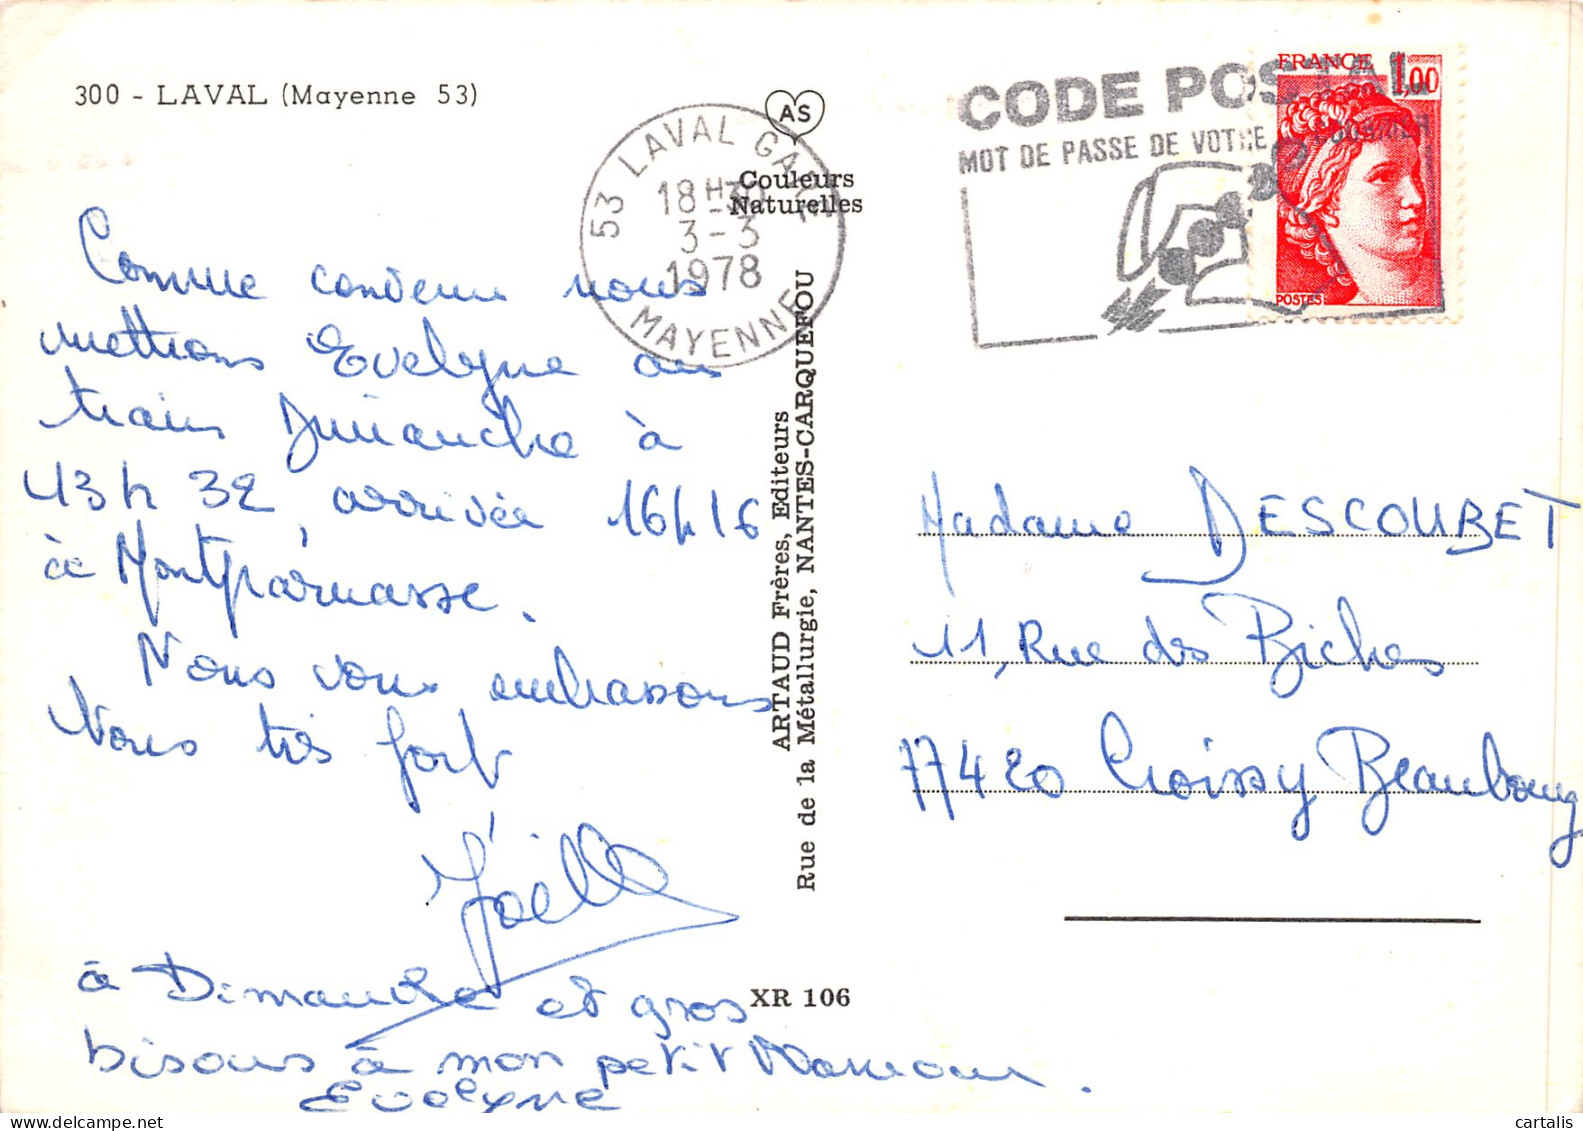 300 - LAVAL (Mayenne 53)
AS
Couleurs
Naturelles
53 LAVAL GARE
18 H 30
3-3
1978
MAYENNE
CODE POSTAL
MOT DE PASSE DE VOTRE COURRIER
FRANCE 1,00
POSTES
Comme convenu nous
mettrons Evelyne au
train Dimanche à
13h 32, arrivée 16h16
à Montparnasse.
Nous vous embrassons
Nous très fort
Joëlle
à Dimanche et gros
bisous à mon petit
Evelyne
ARTAUD Frères, Editeurs
Rue de la Métallurgie, NANTES-CARQUEFOU
XR 106
Madame DESCOUBET
11, Rue des Biches
77420 Croissy Beaubourg
cartalis